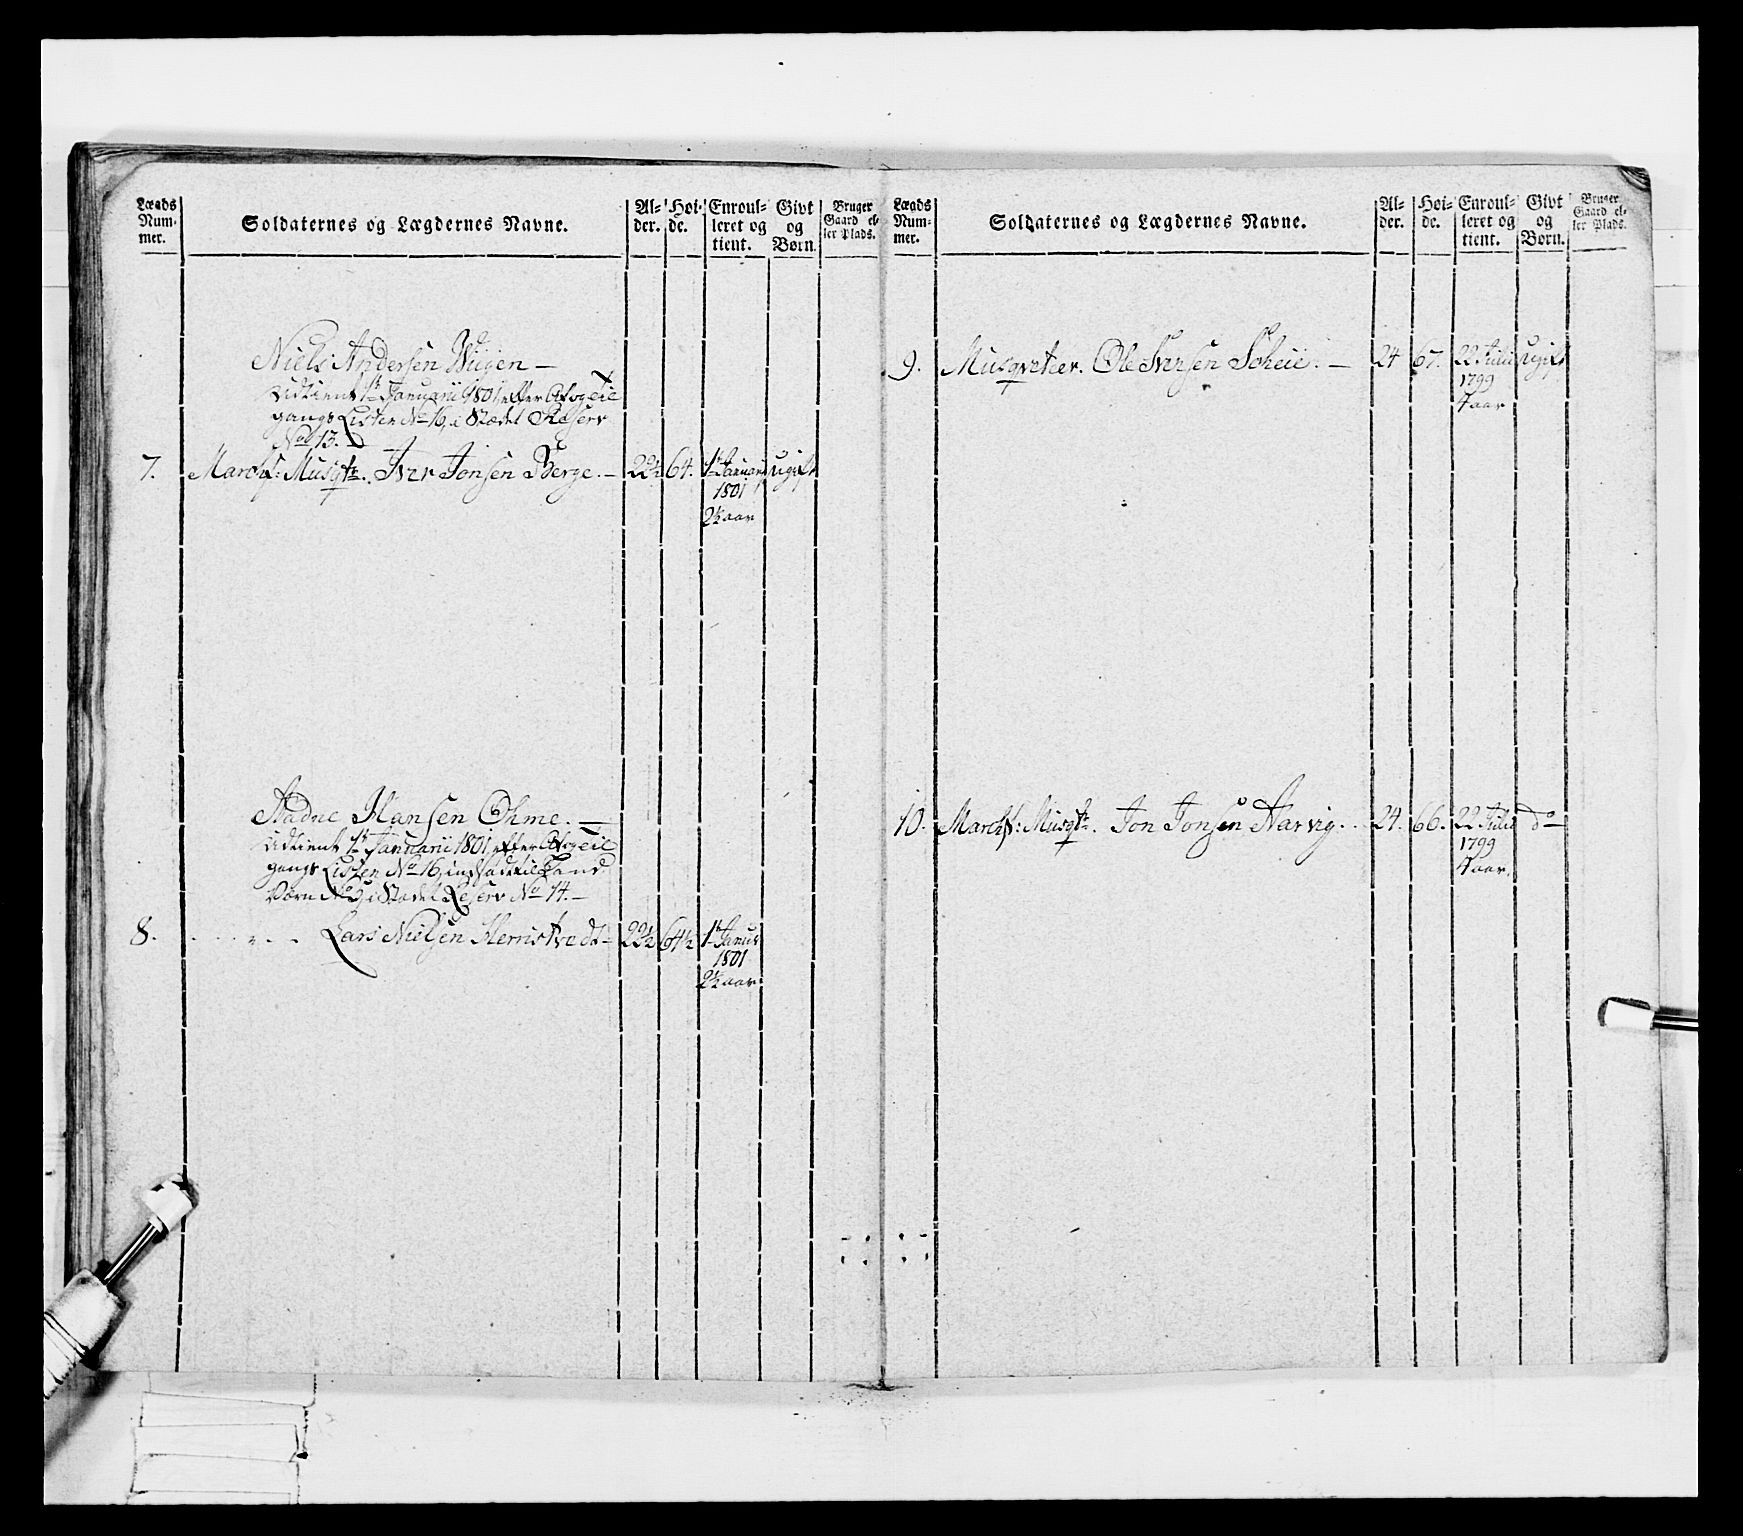 Lægds Num- mer.
Soldaternes og Lægdernes Navne.
Al- der.
Høi- de.
Enroul- leret og tient.
Givt og Børn.
Bruger Gaard el- ler Plads.
Niels Andersen Wiigen —
Udtient 1te Januarii 1801, efter Af
gangs Listen No 16, i Stædet Reserv
No 13.
7. March: Musqtr. Iver Jonsen Berge. — 22½ 64. 1te Januar ugift
1801
2½ aar
Aadne Hansen Ohme. —
Udtient 1te Januarii 1801, efter Af
gangs Listen No 16, indsadt til Land
Værn No 9, i Stædet Reserv No 14. —
8. . . . „ . . Lars Nielsen Herristvedt — 22½ 64½ 1te Januar
1801
2½ aar
Lægds Num- mer.
Soldaternes og Lægdernes Navne.
Al- der.
Høi- de.
Enroul- leret og tient.
Givt og Børn.
Bruger Gaard el- ler Plads.
9. Musqveteer. Ole Iversen Scheie. — 24 67. 22 Julii ugift
1799
4 aar
10. March: Musqtr. Jon Jonsen Aarvig. . 24. 66. 22 Julii do
1799
4 aar.